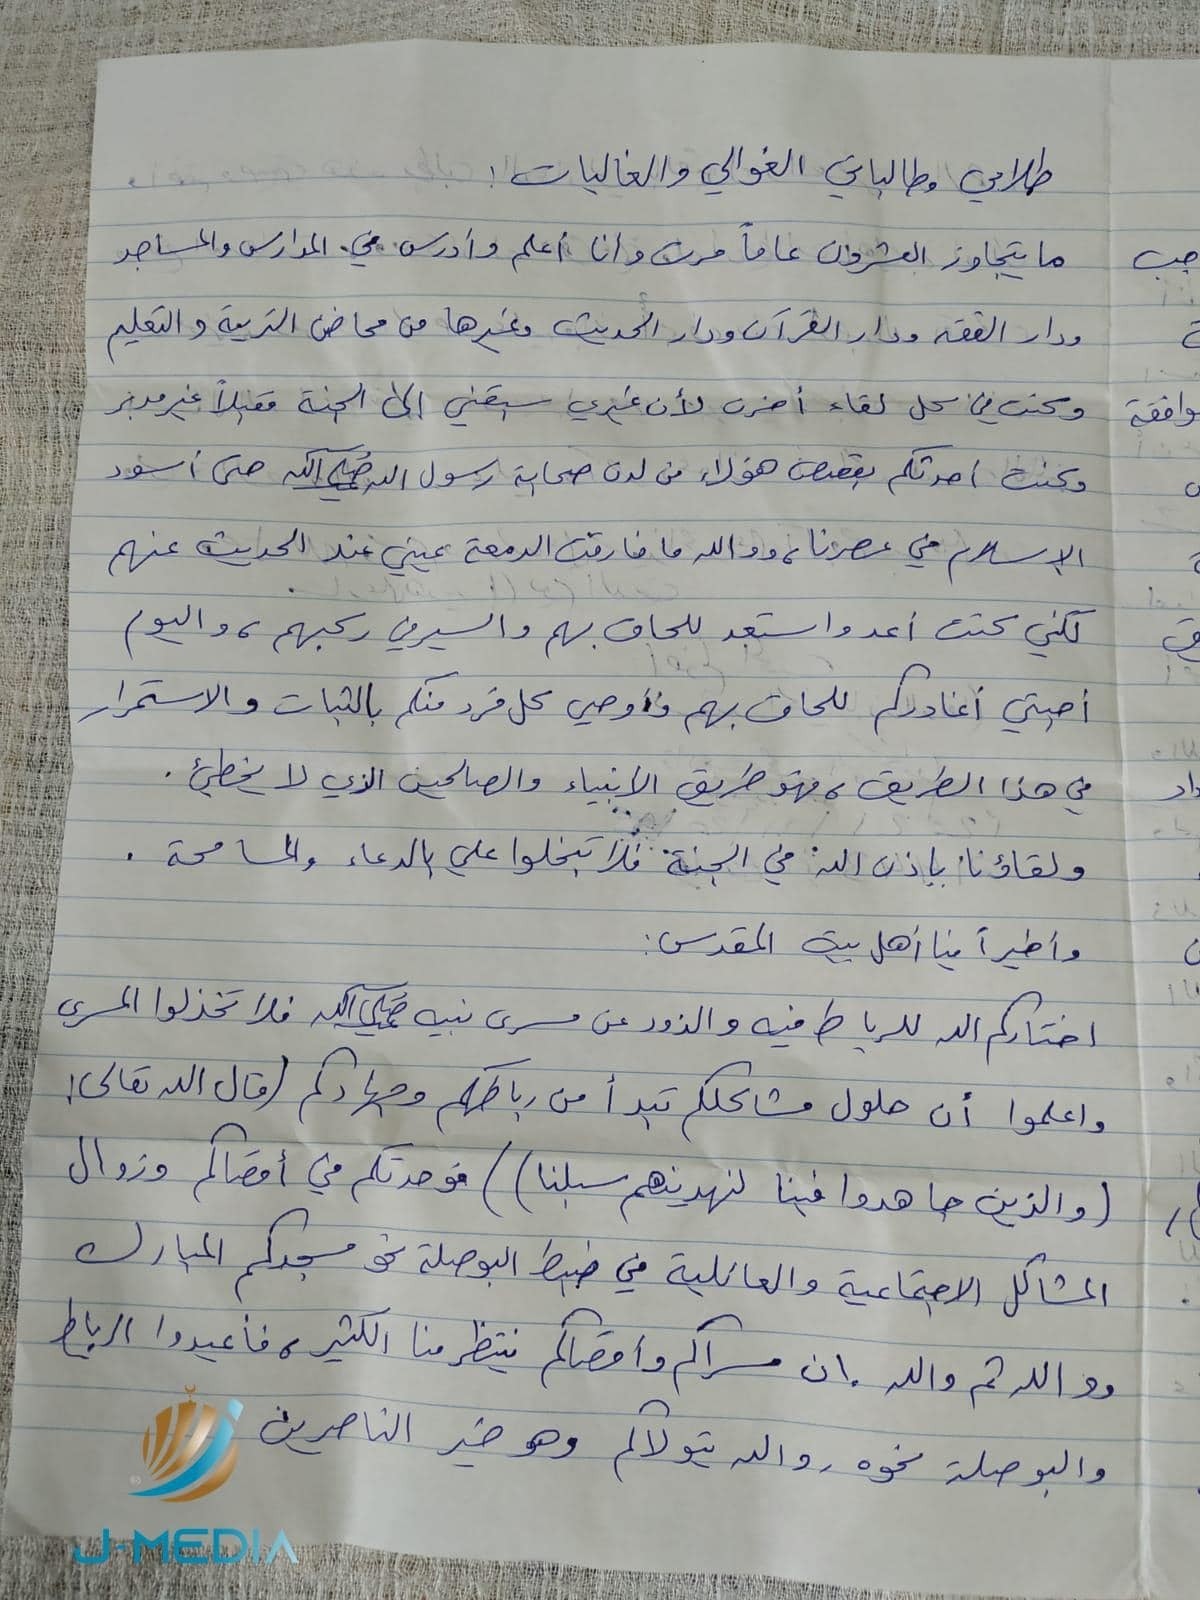 طلابي وطالباتي الغوالي والغاليات!
ما يتجاوز العشرون عاماً مرت وأنا أعلم وأدرس في المدارس والمساجد
ودار الفقه ودار القرآن ودار الحديث وغيرها من محاضن التربية والتعليم
وكنت في كل لقاء أحزن لأن غيري سبقني إلى الجنة مقبلاً غير مدبر
وكنت احدثكم بقصص هؤلاء من لدن صحابة رسول الله ﷺ حتى أسود
الإسلام في عصرنا، ووالله ما فارقت الدمعة عيني عند الحديث عنهم
لكني كنت أعد واستعد للحاق بهم والسير في ركبهم، واليوم
أحبتي أغادركم للحاق بهم فأوصي كل فرد منكم بالثبات والاستمرار
في هذا الطريق، فهو طريق الأنبياء والصالحين الذي لا يخطئ.
ولقاؤنا بإذن الله في الجنة فلا تبخلوا علي بالدعاء والمسامحة.
وأخيراً يا أهل بيت المقدس:
اختاركم الله للرباط فيه والذود عن مسرى نبيه ﷺ فلا تخذلوا المسرى
واعلموا أن حلول مشاكلكم تبدأ من رباطكم وجهادكم (قال الله تعالى:
(والذين جاهدوا فينا لنهدينهم سبلنا)) فوحدتكم في أقصاكم وزوال
المشاكل الاجتماعية والعائلية في ضبط البوصلة نحو مسجدكم المبارك
ووالله ثم والله إن مسراكم وأقصاكم ينتظر منا الكثير، فأعيدوا الرباط
والبوصلة نحوه، والله يتولاكم وهو خير الناصرين
J-MEDIA